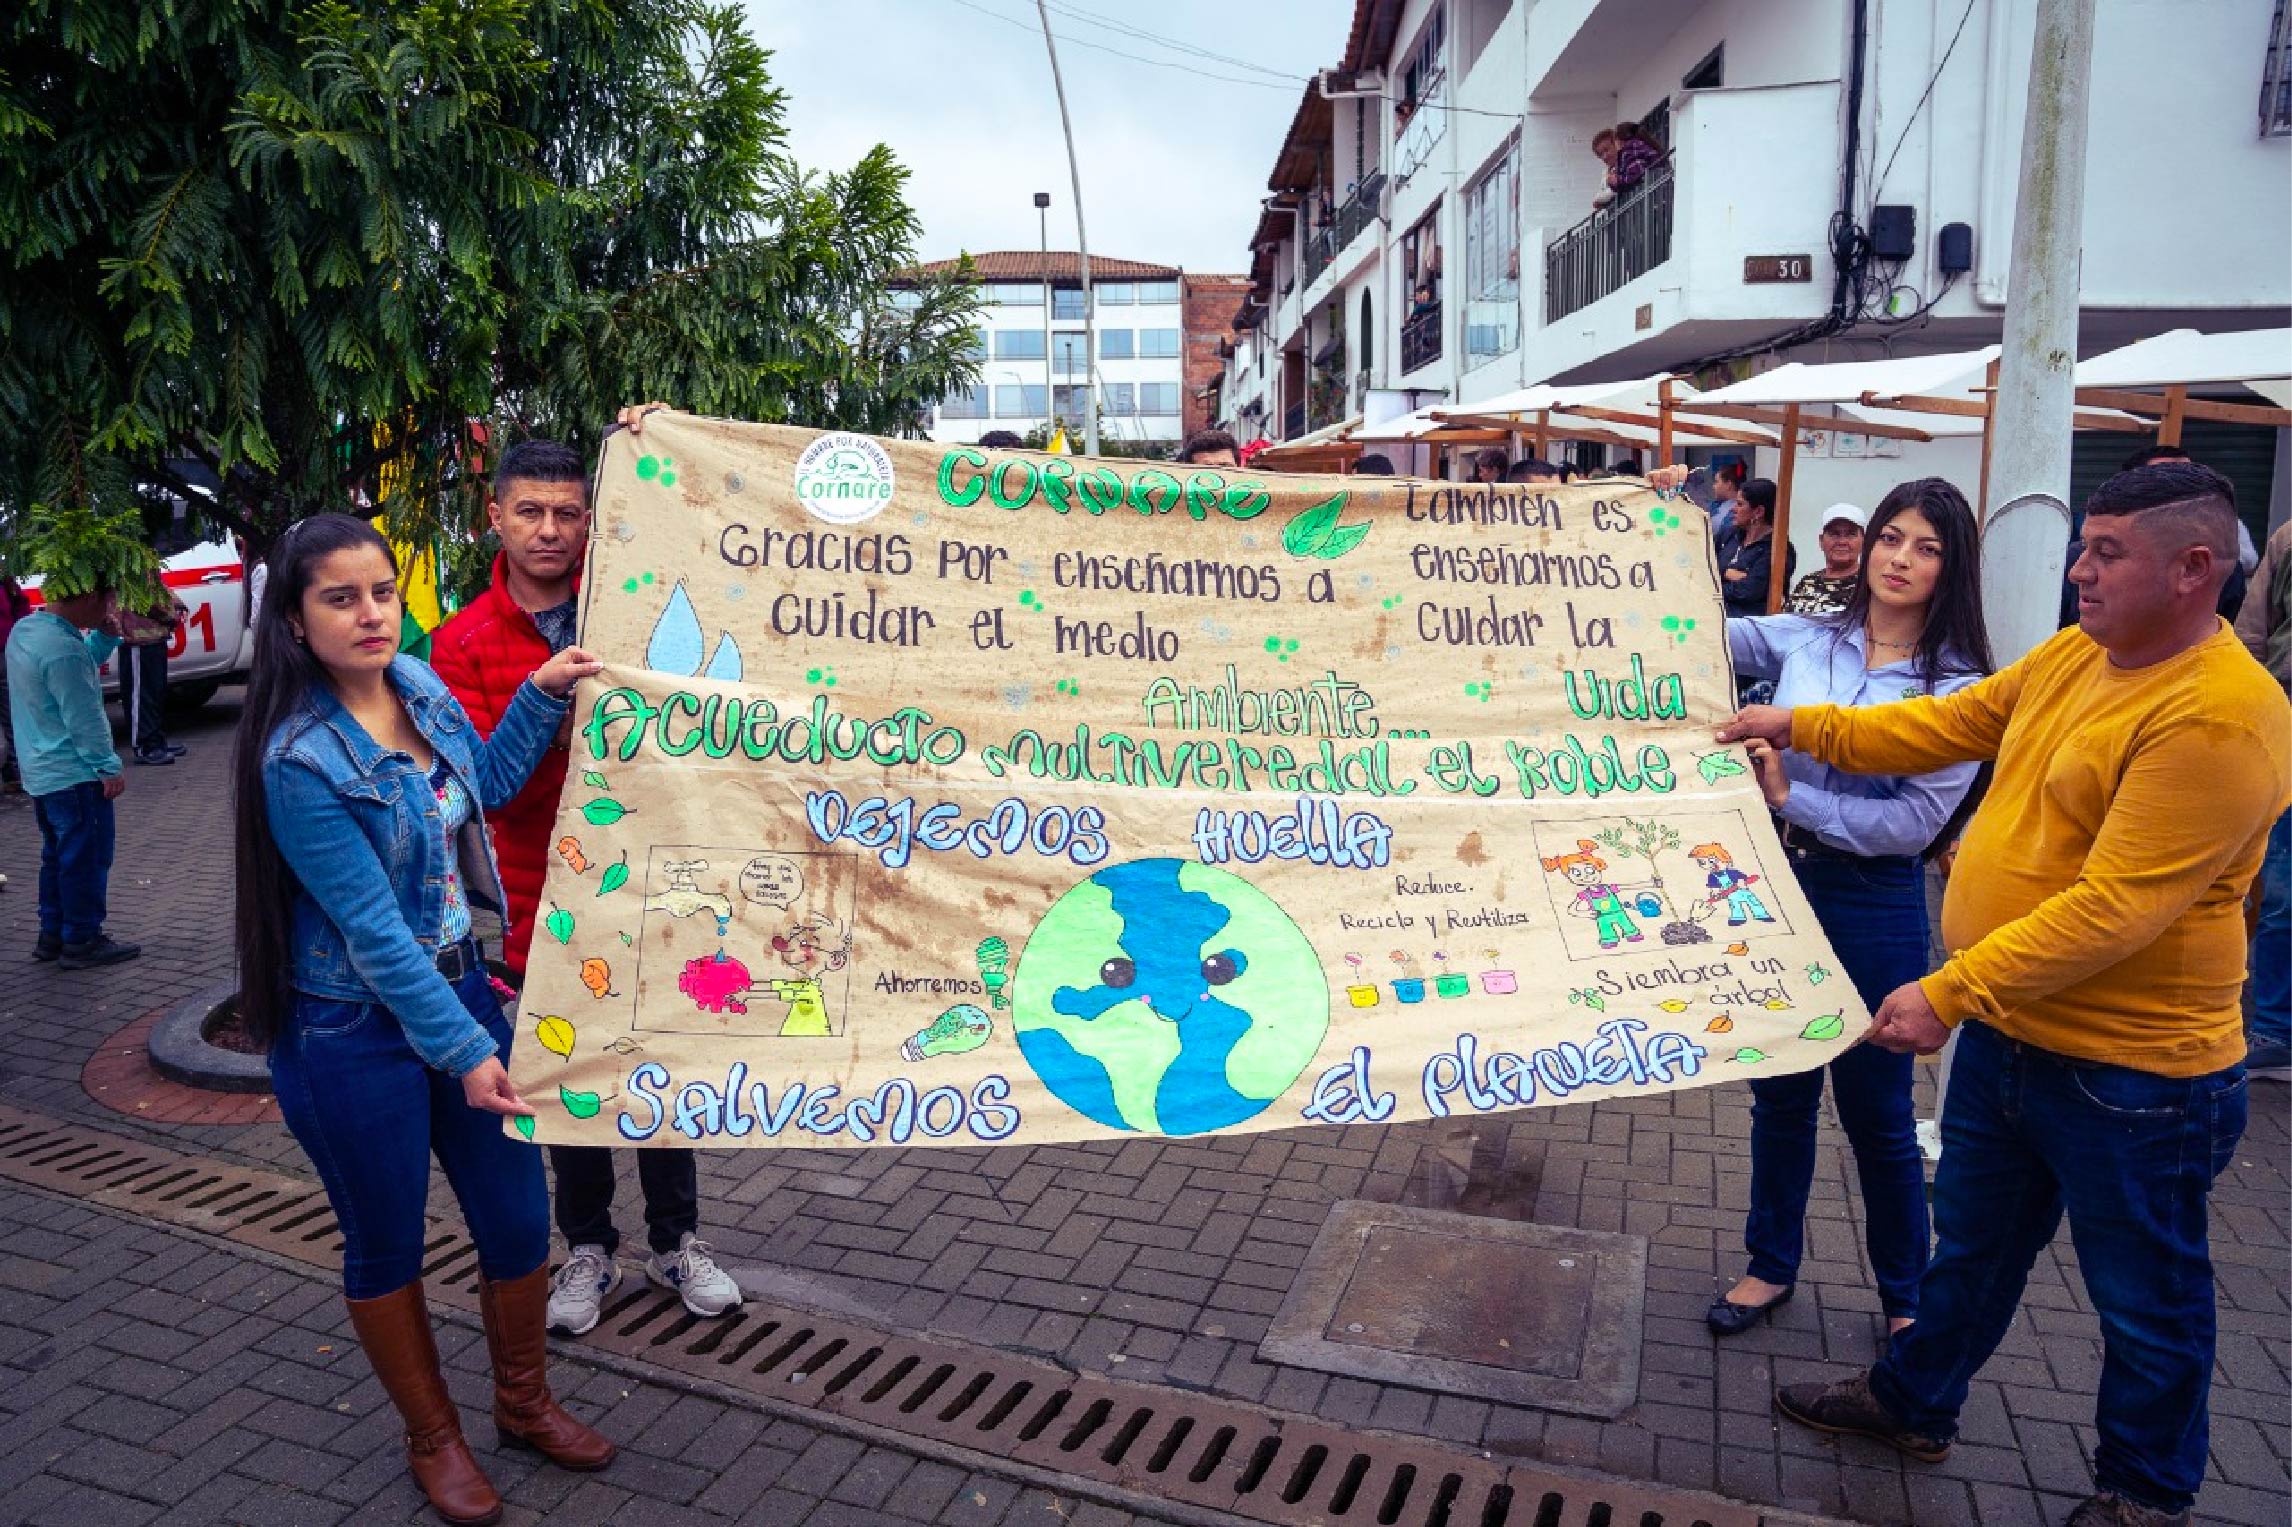 HOMBRE POR NATURALEZA
Cornare
CORNARE
Gracias por enseñarnos a
cuidar el medio
Ambiente...
también es
enseñarnos a
cuidar la
vida
Acueducto multiveredal el Roble
DEJEMOS HUELLA
Ahorremos
Reduce.
Recicla y Reutiliza
Siembra un
árbol
SALVEMOS EL PLANETA
30
01